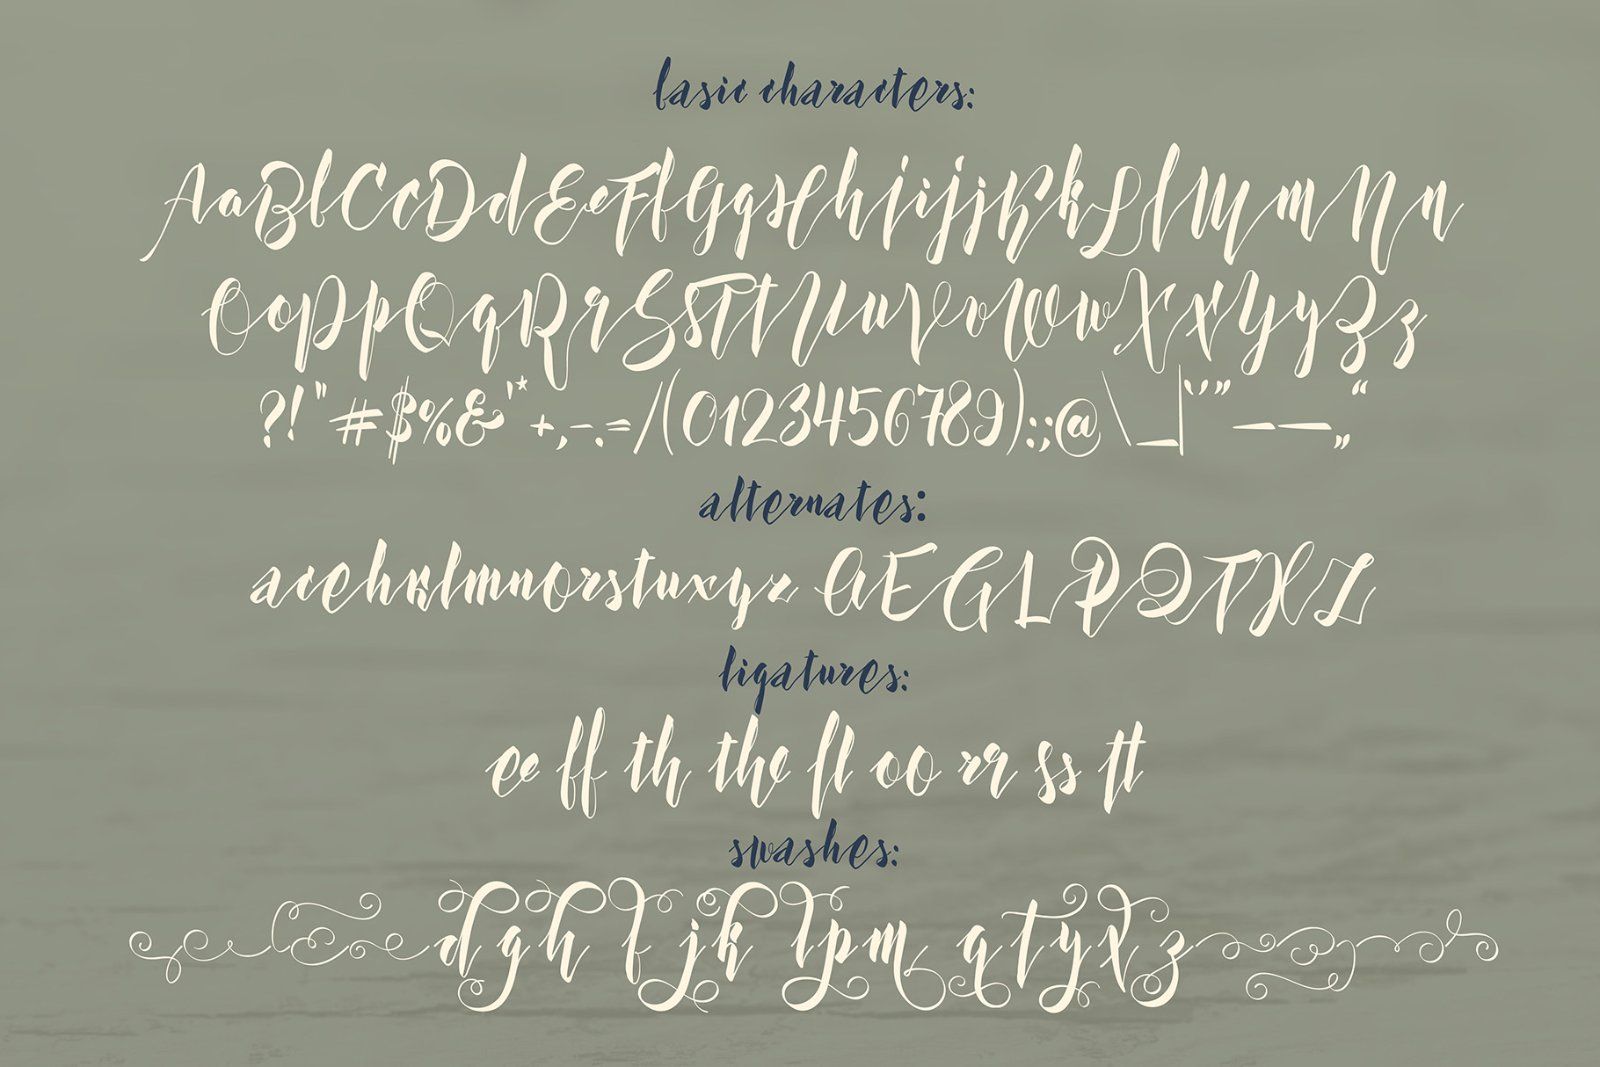 basic characters:
AaBbCcDdEeFfGgHhIiJjKkLlMmNn
OoPpQqRrSsTtUuVvWwXxYyZz
?!"#$%&'*+,-.=/(0123456789):;@\_|‘’”——„“
alternates:
acehklmnorstuxyz AEGLPQTXZ
ligatures:
ee ff th the fl oo rr ss tt
swashes:
dghfjklpmqtyxz